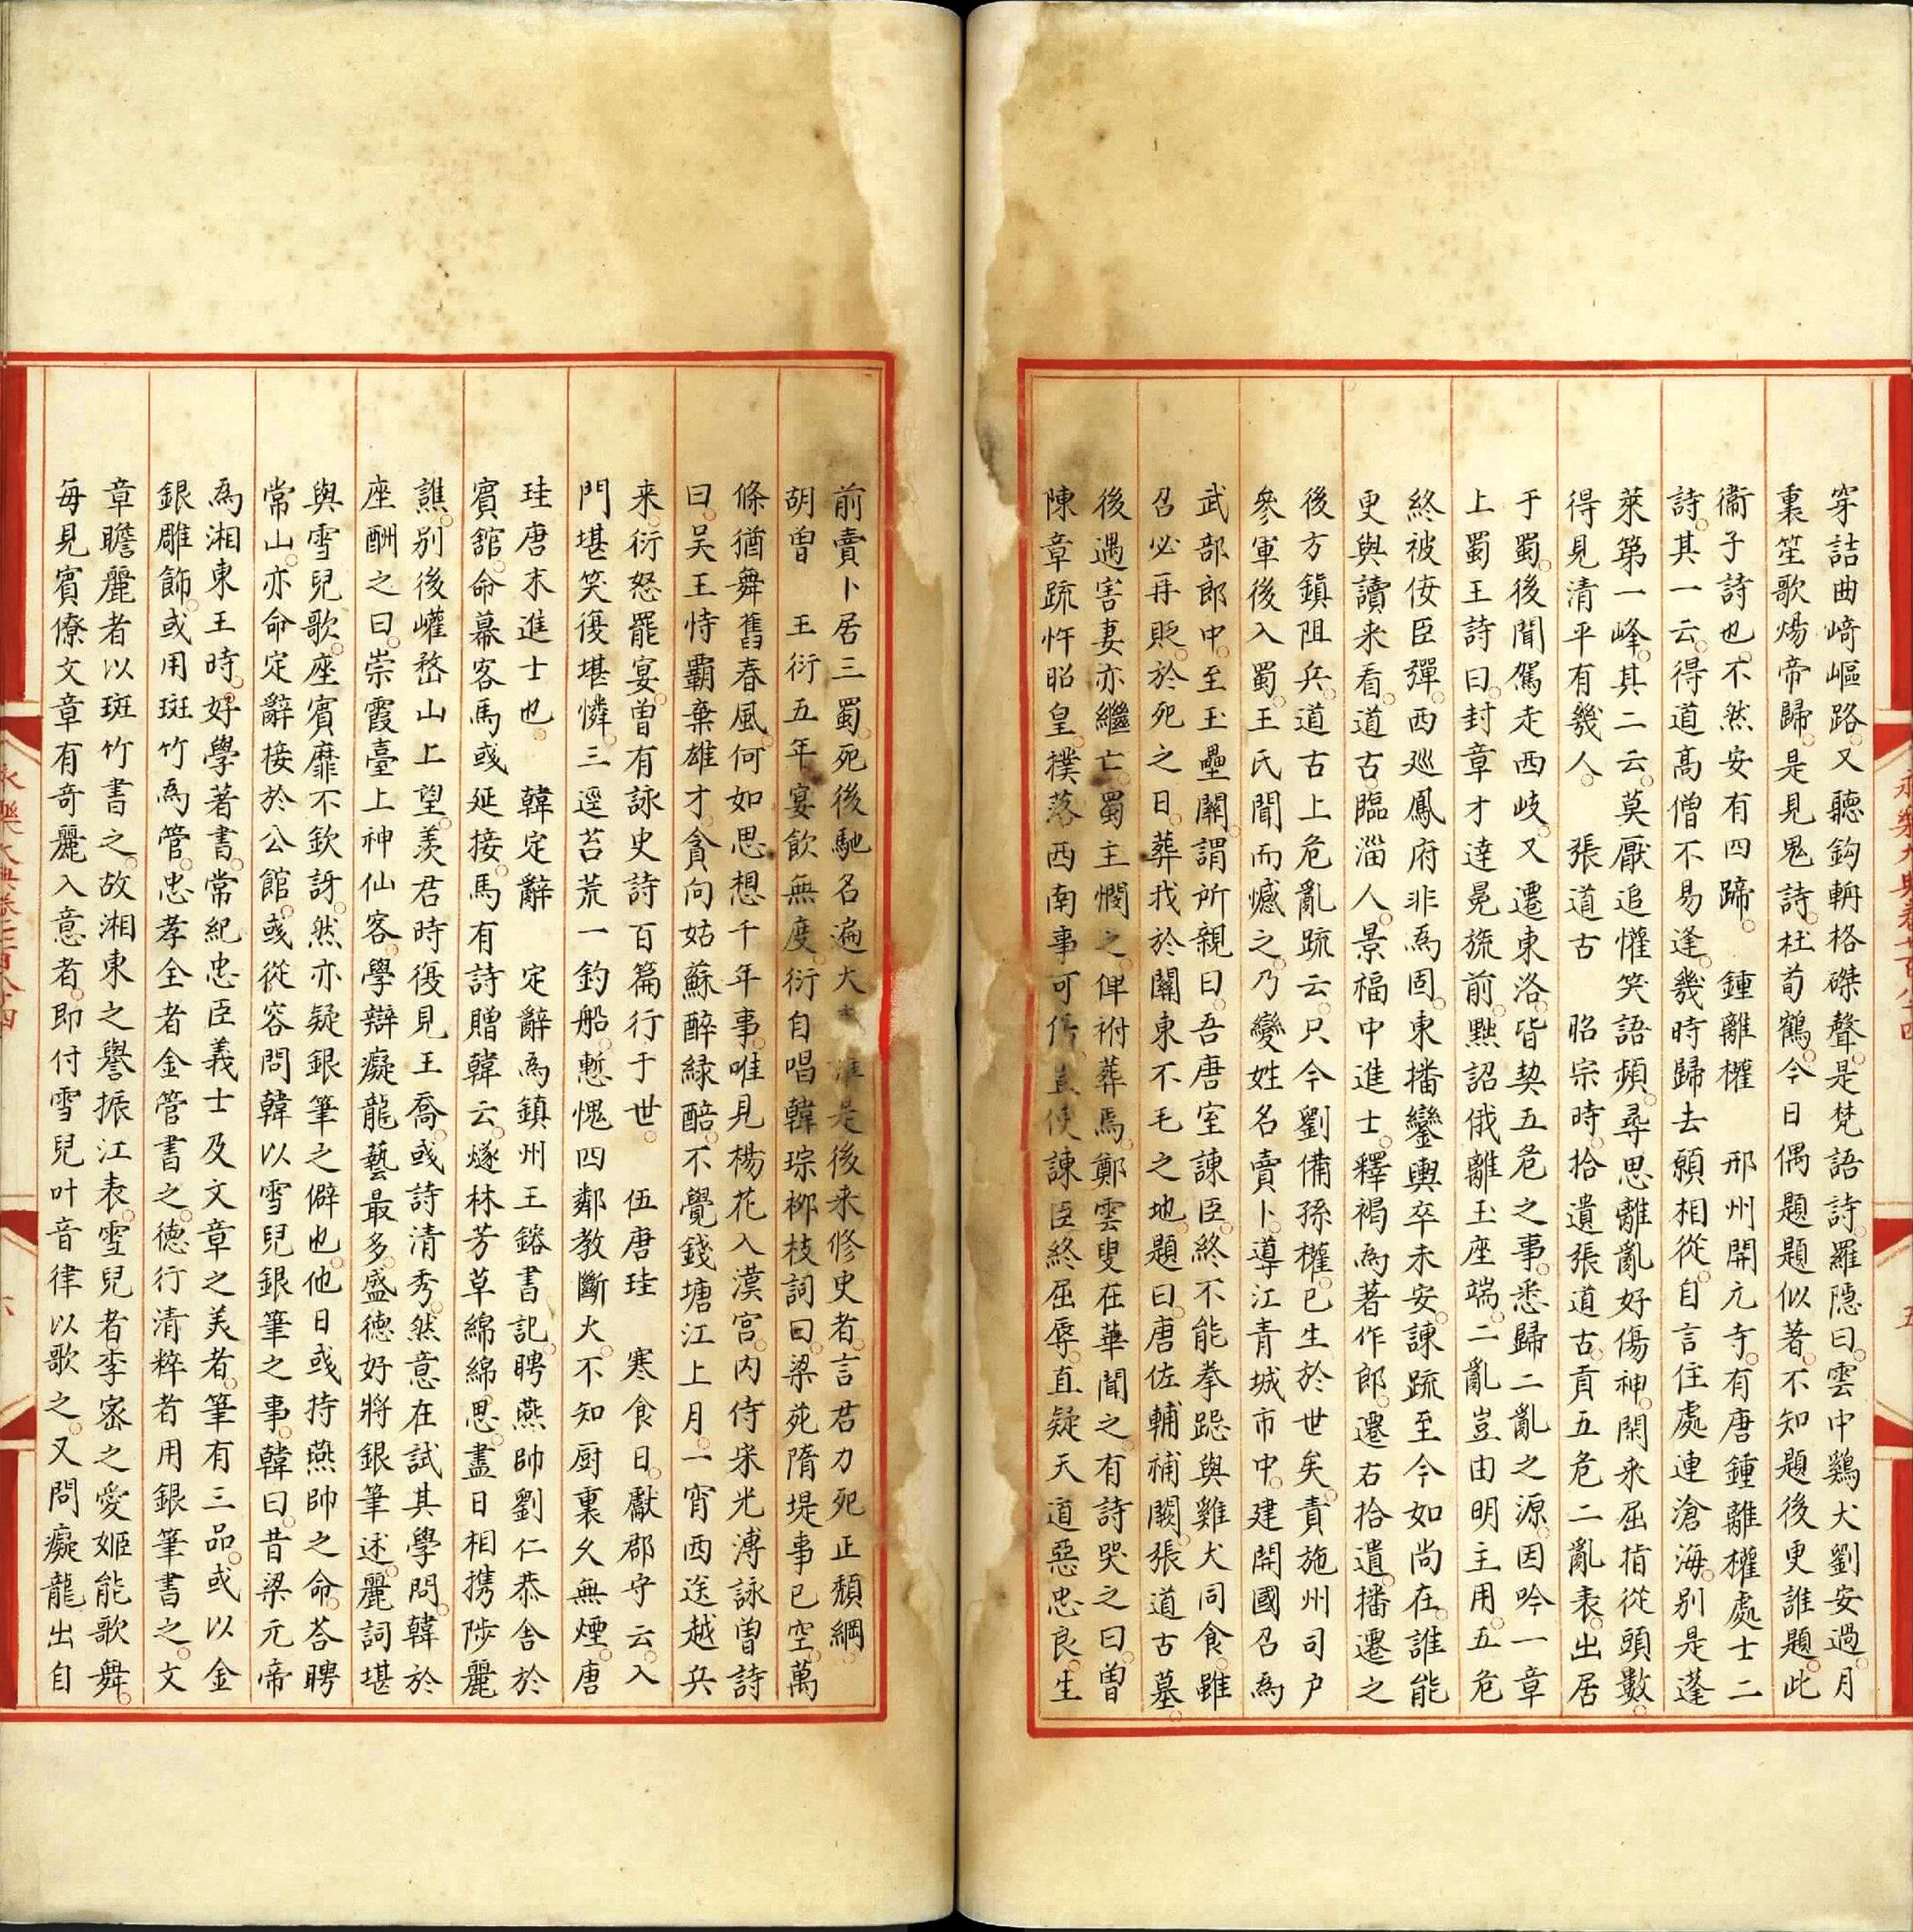 穿詰曲﨑嶇路又聽鈎輈格磔聲是梵語詩羅隠曰雲中鷄犬劉安過月
裏笙歌煬帝歸是見鬼詩杜荀鶴今日偶題題似著不知題後更誰題此
衞子詩也不然安有四蹄 鍾離權 邢州開元寺有唐鍾離權處士二
詩其一云得道髙僧不易逢幾時歸去願相從自言住處連滄海别是蓬
萊第一峰其二云莫厭追懽笑語頻尋思離亂好傷神閑来屈指從頭數
得見清平有幾人 張道古 昭宗時拾遺張道古貢五危二亂表出居
于蜀後聞駕走西岐又遷東洛皆契五危之事悉歸二亂之源因吟一章
上蜀王詩曰封章才達冕旒前黙詔俄離玉座端二亂豈由明主用五危
終被侫臣彈西廵鳳府非爲固東播鑾輿卒未安諫䟽至今如尚在誰能
更與讀来看道古臨淄人景福中進士釋褐爲著作郎遷右拾遺播遷之
後方鎮阻兵道古上危亂䟽云只今劉備孫權已生於世矣責施州司户
參軍後入蜀王氏聞而憾之乃變姓名賣卜導江青城市中建開國召爲
武部郎中至玉壘關謂所親曰吾唐室諫臣終不能拳跽與雞犬同食雖
召必再貶於死之日葬我於關東不毛之地題曰唐佐輔補闕張道古墓
後遇害妻亦繼亡蜀主憫之俾祔葬焉鄭雲叟在華聞之有詩哭之曰曽
陳章䟽忤昭皇撲落西南事可傷豈使諫臣終屈辱直疑天道惡忠良生
前賣卜居三蜀死後馳名遍大 是後来修史者言君力死正頽綱
胡曽 王衍五年宴飲無度衍自唱韓琮栁枝詞曰梁苑隋堤事已空萬
條猶舞舊春風何如思想千年事唯見楊花入漢宫内侍宋光溥詠曽詩
曰吴王恃霸棄雄才貪向姑蘇醉緑醅不覺錢塘江上月一宵西送越兵
来衍怒罷宴曽有詠史詩百篇行于世 伍唐珪 寒食日獻郡守云入
門堪笑復堪憐三逕苔荒一釣船慙愧四鄰教斷火不知厨裏乆無煙唐
珪唐末進士也 韓定辭 定辭爲鎮州王鎔書記聘燕帥劉仁恭舎於
賓舘命幕客馬彧延接馬有詩贈韓云燧林芳草綿綿思盡日相携陟麗
譙别後巏嵍山上望羨君時復見王喬彧詩清秀然意在試其學問韓於
座酬之曰崇霞臺上神仙客學辯癡龍藝最多盛德好將銀筆述麗詞堪
與雪兒歌座賓靡不欽訝然亦疑銀筆之僻也他日彧持燕帥之命荅聘
常山亦命定辭接於公館彧從容問韓以雪兒銀筆之事韓曰昔梁元帝
爲湘東王時好學著書常紀忠臣義士及文章之美者筆有三品或以金
銀雕飾或用斑竹爲管忠孝全者金管書之德行清粹者用銀筆書之文
章贍麗者以斑竹書之故湘東之譽振江表雪兒者李宻之愛姬能歌舞
每見賓僚文章有奇麗入意者即付雪兒叶音律以歌之又問癡龍出自